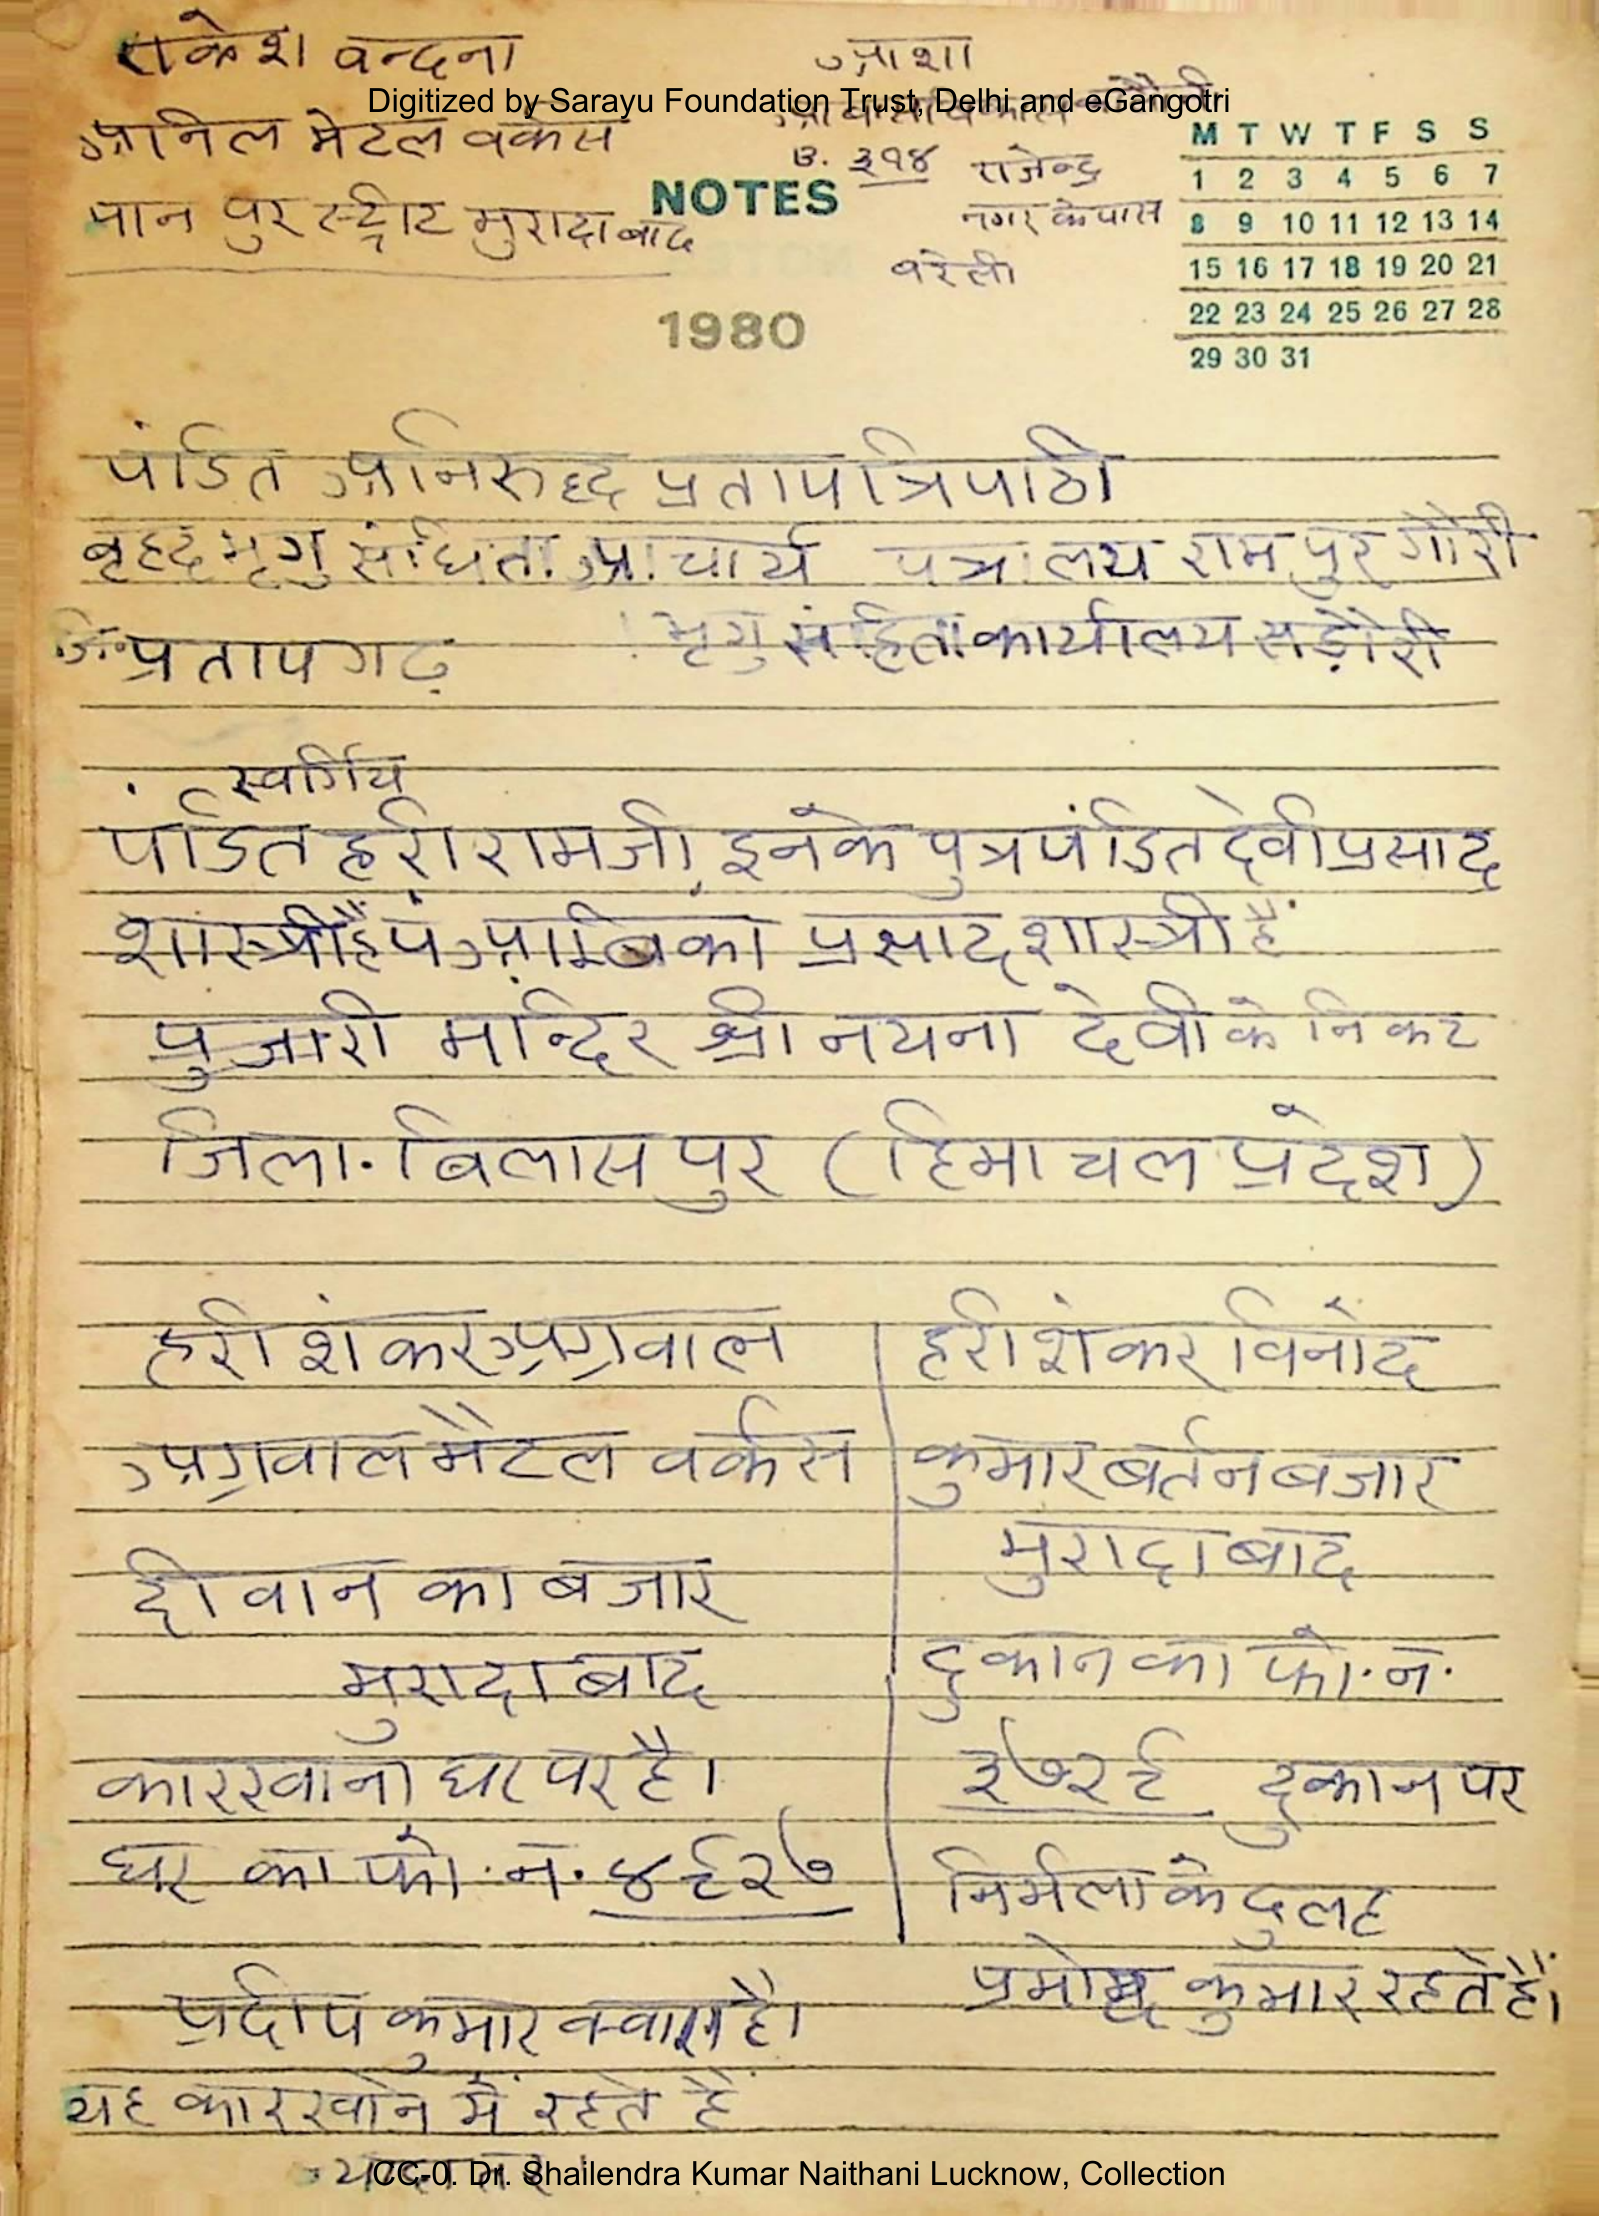 राकेश वन्दना
आशा
Digitized by Sarayu Foundation Trust, Delhi and eGangotri
अनिल मेटल वर्कस
B. ३१४ राजेन्द्र
पान पुर स्ट्रीट मुरादाबाद
नगर के पास
बरेली
NOTES
1980
M T W T F S S
1 2 3 4 5 6 7
8 9 10 11 12 13 14
15 16 17 18 19 20 21
22 23 24 25 26 27 28
29 30 31
पंडित अनिरुद्द प्रताप त्रिपाठी
बृहद भृगु संघिता आचार्य पत्रालय राम पुर गौरी
जि. प्रतापगढ़
भृगु संहिता कार्यालय सड़ौरी
स्वर्गिय
पंडित हरी रामजी इनके पुत्र पंडित देवी प्रसाद
शास्त्री हैं पं अम्बिका प्रसाद शास्त्री हैं
पुजारी मन्दिर श्री नयना देवी के निकट
जिला. बिलासपुर (हिमाचल प्रदेश)
हरी शंकर अग्रवाल
अग्रवाल मैटल वर्कस
दीवान का बजार
मुरादाबाद
कारखाना घर पर है।
घर का फो. न. ४६२७
प्रदीप कुमार क्वारा है।
यह कारखाने में रहते हैं
हरी शंकर विनोद
कुमार बर्तन बजार
मुरादाबाद
दुकान का फो. न.
३७२६ दुकान पर
निर्मला के दुलह
प्रमोद कुमार रहते हैं।
CC-0. Dr. Shailendra Kumar Naithani Lucknow, Collection